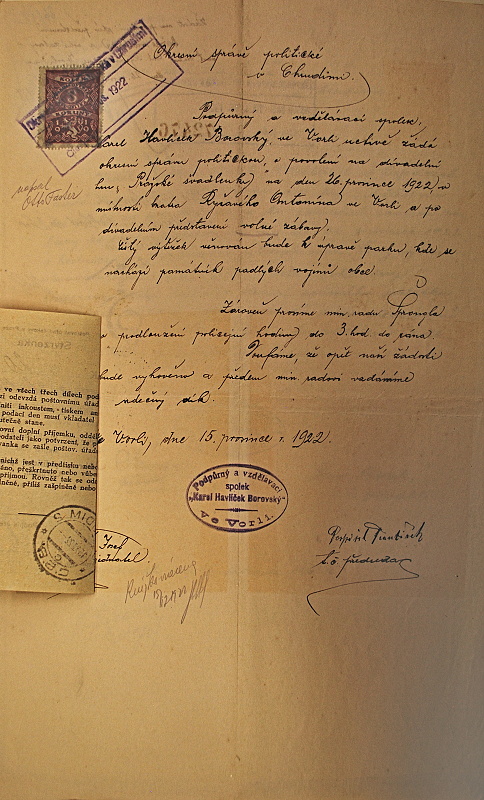 Okresní správě politické
v Chrudimi.
1922
Podpůrný a vzdělávací spolek
Karel Havlíček Borovský, ve Vorli uctivě žádá
okresní správu politickou, o povolení na divadelní
hru „Pražské švadlenky" na den 26. prosince 1922 v
místnosti hosta Ryšavého Antonína ve Vorli a po
divadelním představení volné zábavy.
Čistý výtěžek věnován bude k úpravě parku, kde se
nachází památník padlých vojínů obce.
Zároveň prosíme min. radu Šprongla
o prodloužení policejní hodiny do 3. hod. do rána
Doufáme, že opět naší žádosti
bude vyhověno a předem min. radovi vzdáváme
srdečný dík.
Vorli, dne 15. prosince r. 1922.
napsal
Otto Fasler
Stvrzenka
ve všech třech dílech pod
zi odevzdá poštovnímu úřad
niti inkoustem, tiskem an
podací den musí vkladatel
utečně stane.
ovní doplní příjemku, odděl
vodateli jako potvrzení, že p
vanka se zašle poštov. úřad
nichž jest v předtisku nebo
áno, přeškrtnuto nebo vyba
přijmou. Rovněž tak se od
lněné, příliš zašpiněné nebo
S. MICH
"Podpůrný a vzdělávací
spolek
"Karel Havlíček Borovský"
ve Vorli.
Josef
Pospíšil František
t. č. předseda